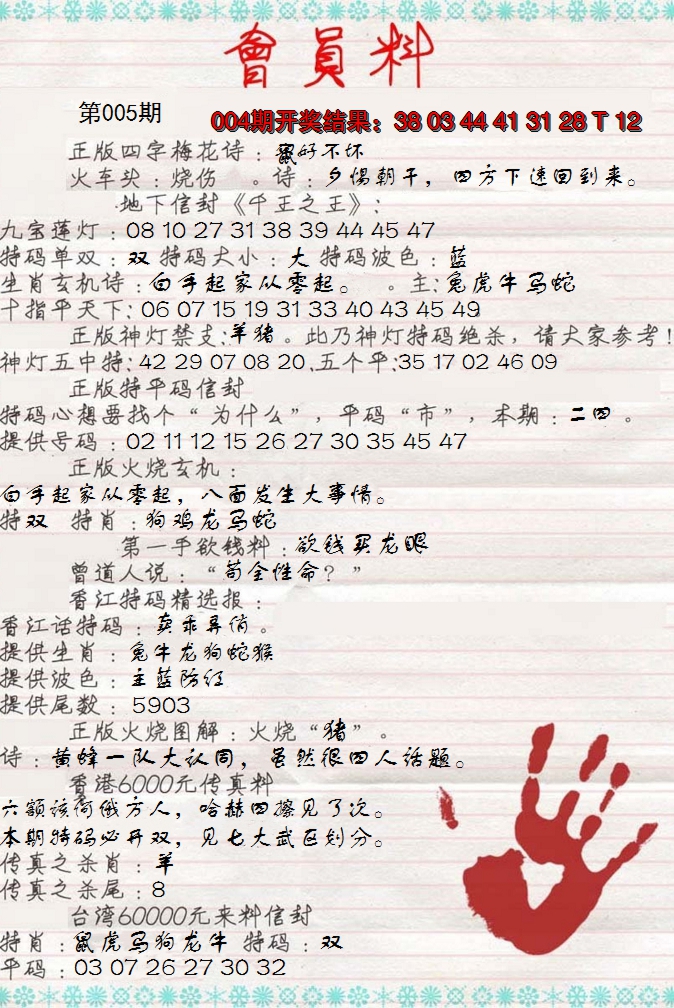 會員料
第005期
004期开奖结果：38 03 44 41 31 28 T 12
正版四字梅花诗：鼠好不坏
火车头：烧伤 。诗：夕惕朝干，四方下速回到来。
地下信封《千王之王》：
九宝莲灯：08 10 27 31 38 39 44 45 47
特码单双：双 特码大小：大 特码波色：蓝
生肖玄机诗：白手起家从零起。 。主：兔虎牛马蛇
十指平天下：06 07 15 19 31 33 40 43 45 49
正版神灯禁支：羊猪。此乃神灯特码绝杀，请大家参考！
神灯五中特：42 29 07 08 20.五个平：35 17 02 46 09
正版特平码信封
特码心想要找个“为什么”，平码“市”，本期：二四。
提供号码：02 11 12 15 26 27 30 35 45 47
正版火烧玄机：
白手起家从零起，八面发生大事情。
特双 特肖：狗鸡龙马蛇
第一手欲钱料：欲钱买龙眼
曾道人说：“苟全性命？”
香江特码精选报：
香江话特码：卖乖弄俏。
提供生肖：兔牛龙狗蛇猴
提供波色：主蓝防红
提供尾数：5903
正版火烧图解：火烧“猪”。
诗：黄蜂一队大认同，虽然很四人话题。
香港6000元传真料
六额该何俄方人，哈赫四擦见了次。
本期特码必开双，见七大武区划分。
传真之杀肖：羊
传真之杀尾：8
台湾60000元来料信封
特肖：鼠虎马狗龙牛 特码：双
平码：03 07 26 27 30 32